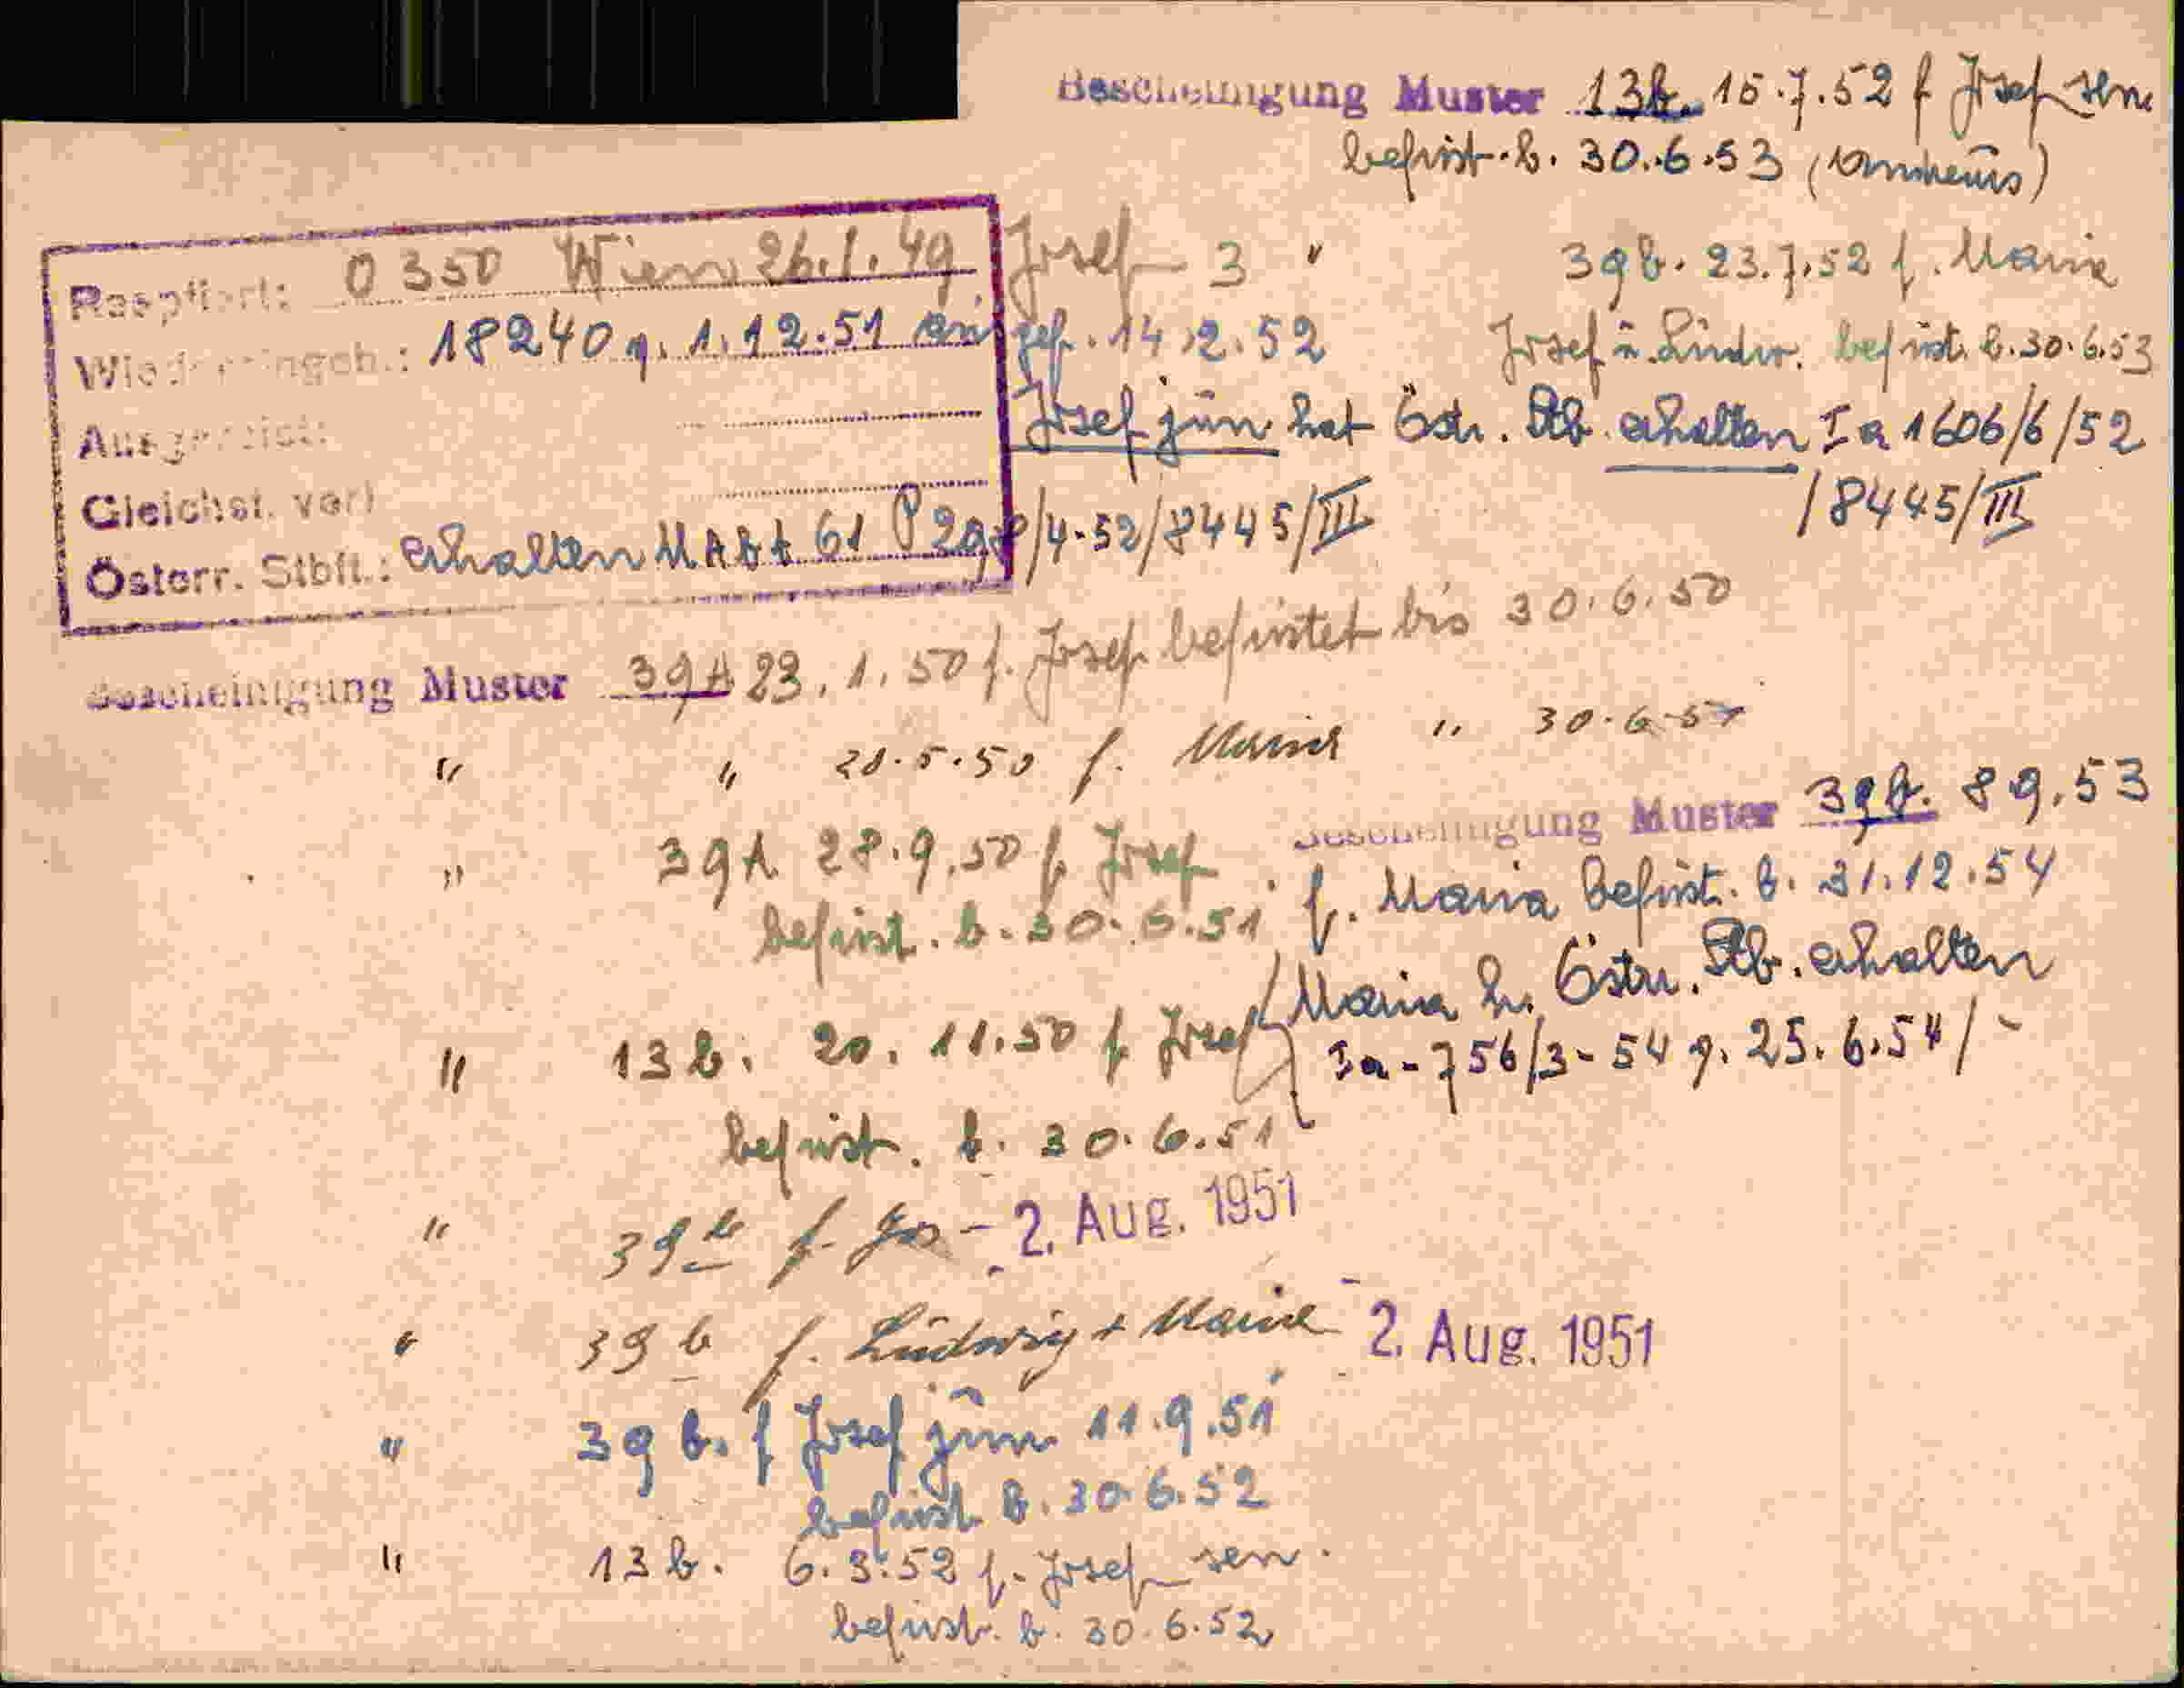 Bescheinigung Muster 13b. 15.7.52 f Josef sen
befrist. b. 30.6.53
Respiert: O 350 Wien 26.1.49 Josef 3 " 39b. 23.7.52 f. Maria
Wiedereingeb.: 18240 g. 1.12.51 ein gef. 14.2.52 Josef u. Ludw. befrist. b. 30.6.53
Ausgereist: Josef jun hat Östr. Stb. erhalten Ia 1606/6/52
/8445/III
Gleichst. verl
Österr. Stbft.: erhalten MAbt 61 /4-52/8445/III
Bescheinigung Muster 39A 23.1.50 f. Josef befristet bis 30.6.50
" " 5.50 f. Maria " 30.6.
" 39A 28.9.50 f. Josef
befrist. b. 30.6.51
Bescheinigung Muster 39b. 8 9.53
f. Maria befrist. b. 31.12.54
Maria h. Östr. Stb. erhalten
Ia-756/3-54 g. 25.6.54/-
" 13b. 20.11.50 f Josef
befrist. b. 30.6.51
" 39b f. Jos - 2. Aug. 1951
" 39b f. Ludwig + Maria - 2. Aug. 1951
" 39b. f Josef jun 11.9.51
befrist b. 30.6.52
" 13b. 6.3.52 f. Josef sen.
befrist. b. 30.6.52